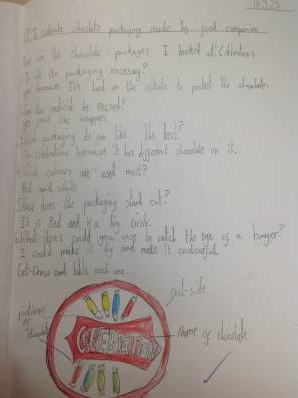 17.3.23
LI: To evaluate chocolate packaging made by food companies
packages I looked at: Celebrations
Is all the packaging necessary?
yes because it's hard on the outside to protect the chocolate.
Can the material be reused?
yes just the wrappers
Which packaging do you like the best?
The Celebrations because it has different chocolate on it.
Which colours are used most?
Red and white
How does the packaging stand out?
It is Red and is a big circle.
What ideas could you use to catch the eye of a buyer?
I could make it and make it colourful.
Ext-Draw and label each one.
out-side
pictures of chocolate
CELEBRATIONS
Name of chocolate